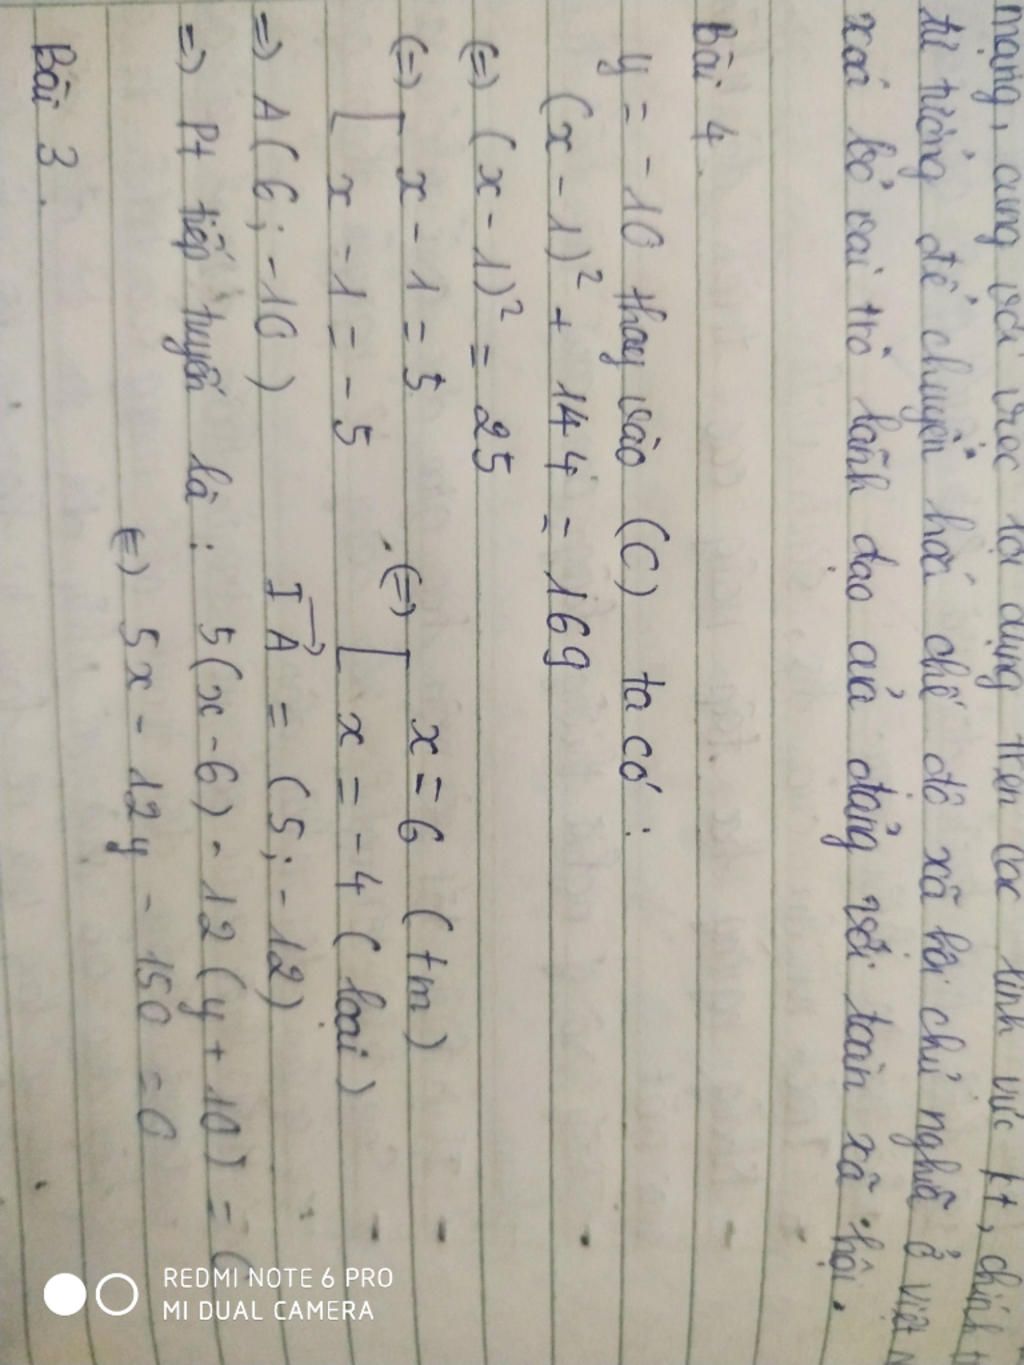 mạng, cùng với việc lợi dụng trên các lĩnh vực kt, chính
tư tưởng để chuyển hoá chế độ xã hội chủ nghĩa ở việt
xoá bỏ vai trò lãnh đạo của đảng với toàn xã hội.
Bài 4.
y = -10 thay vào (C) ta có :
(x - 1)² + 144 = 169
(=) (x - 1)² = 25
(=) [ x - 1 = 5 (=) [ x = 6 (tm)
x - 1 = - 5 x = - 4 (loại)
=) A(6; -10) IA = (5; -12)
=) Pt tiếp tuyến là : 5(x - 6) - 12(y + 10) =
(=) 5x - 12y - 150 = 0
Bài 3.
REDMI NOTE 6 PRO
MI DUAL CAMERA